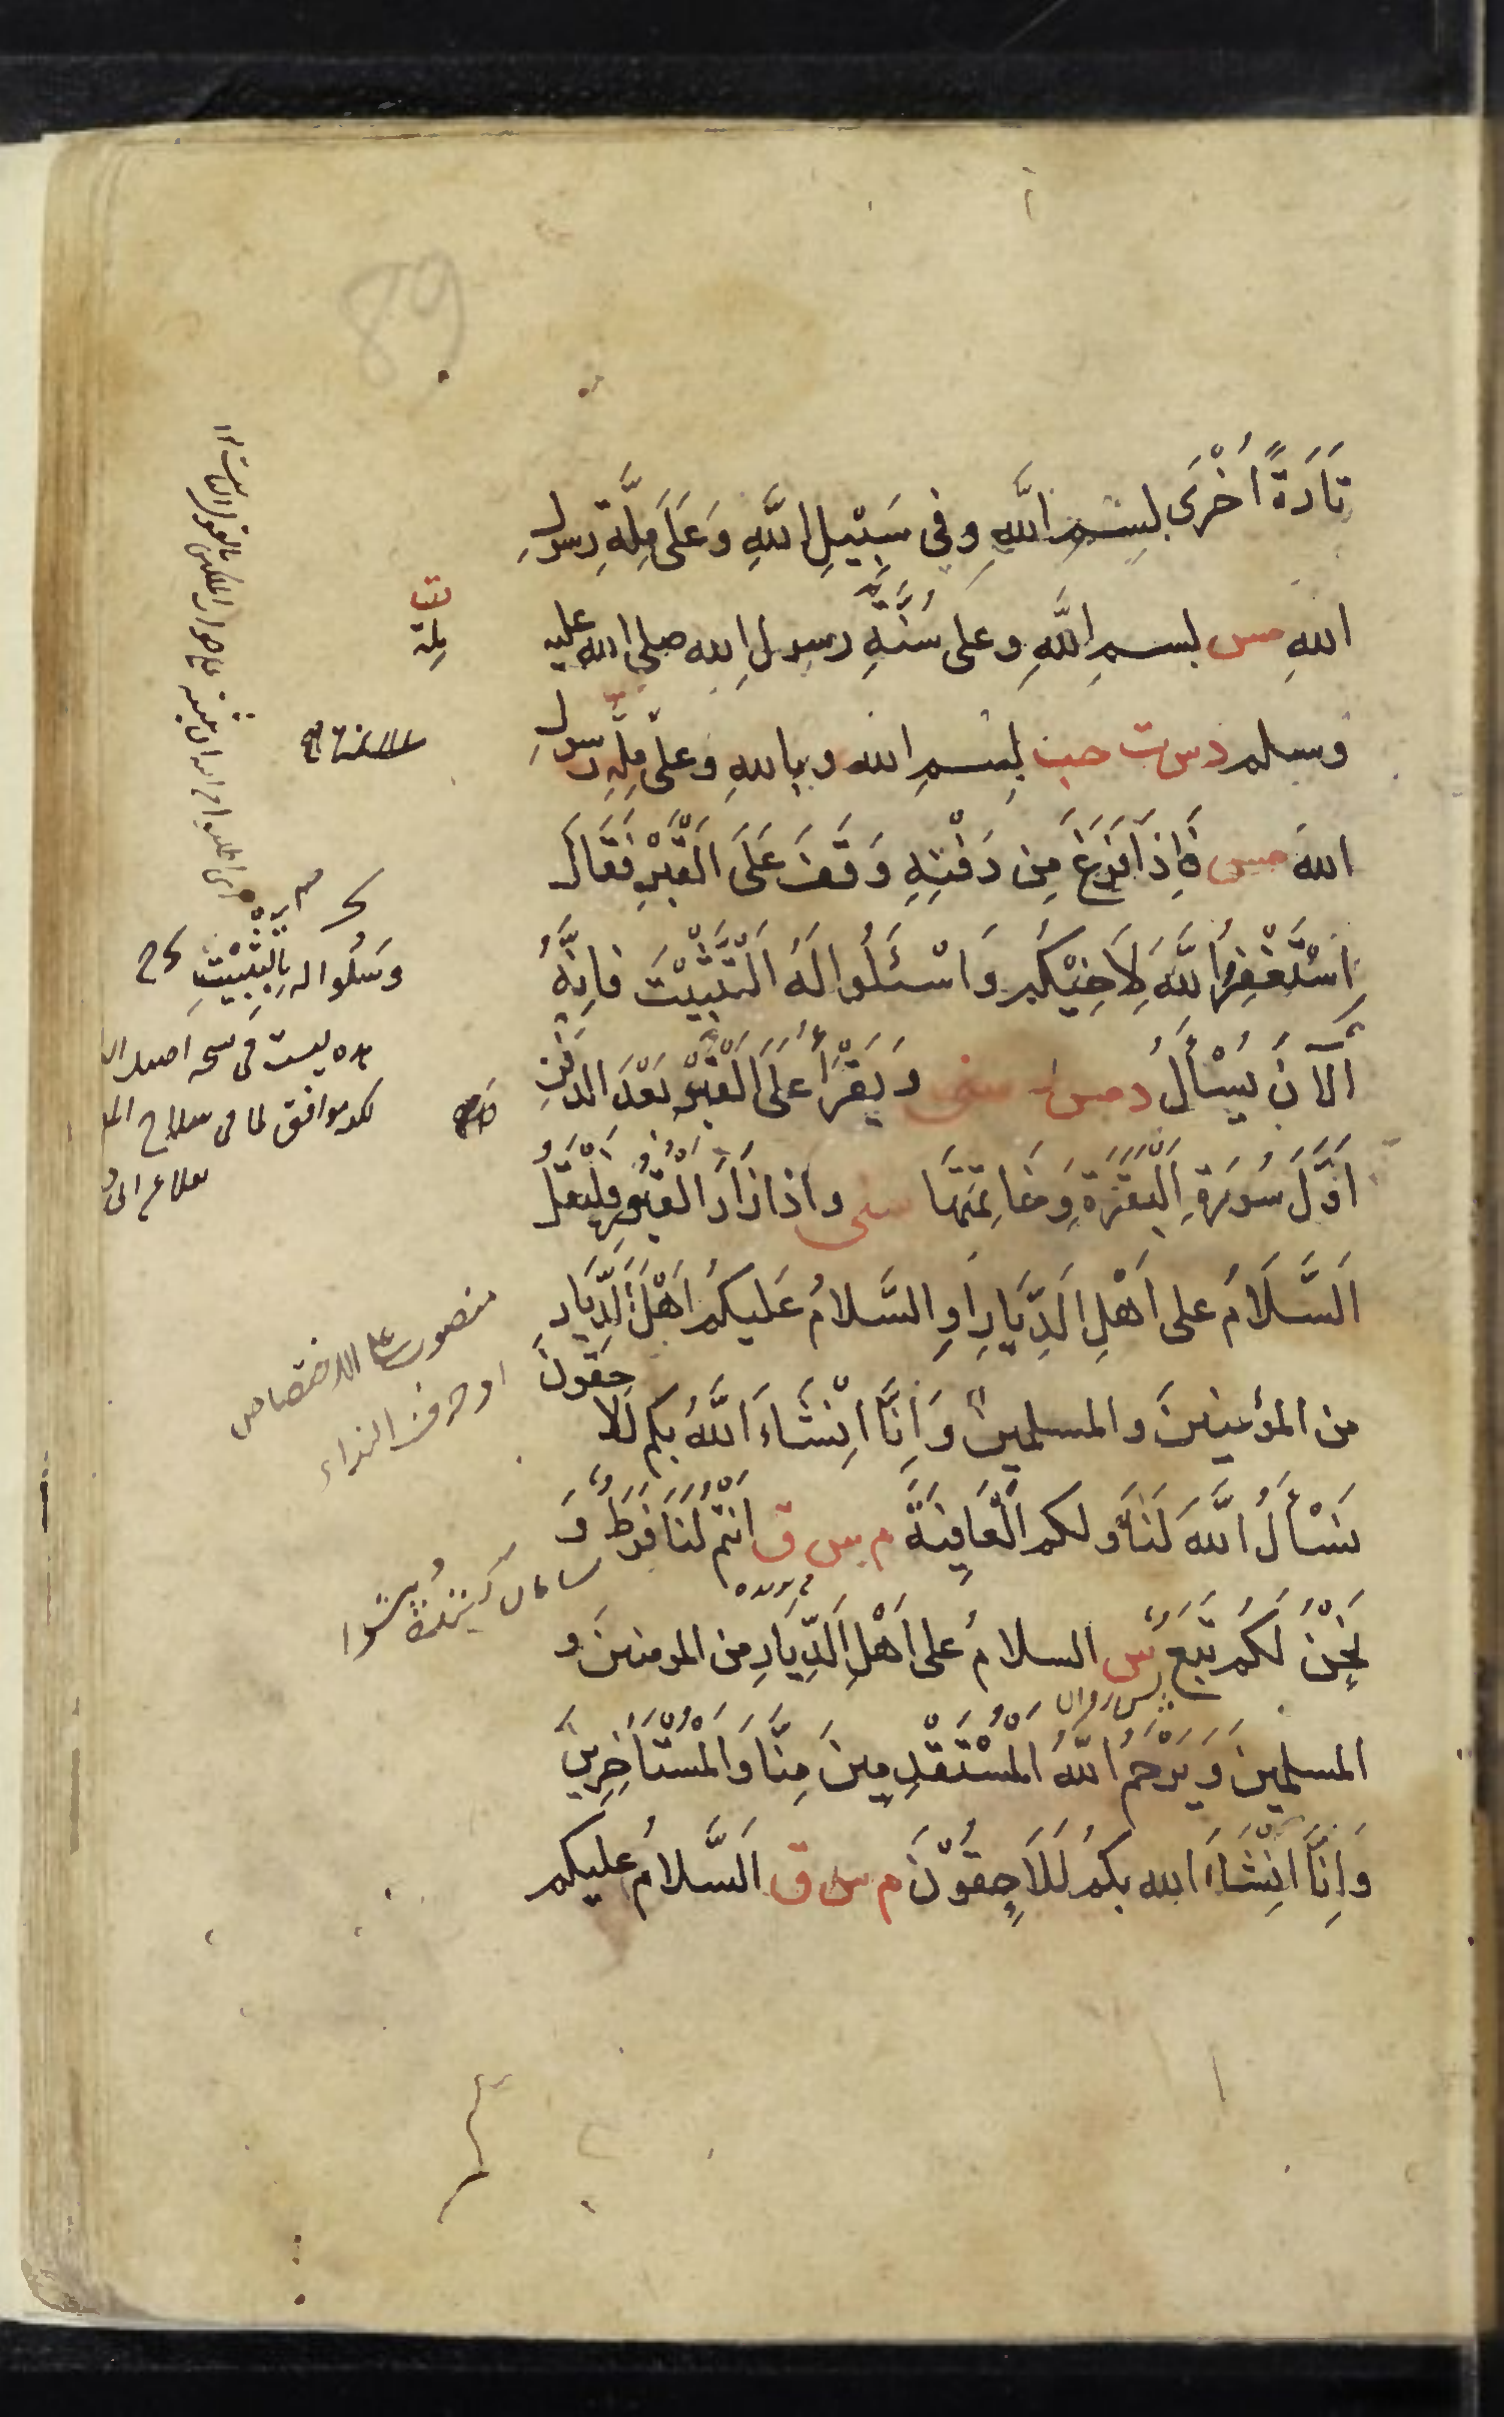 89
تَارَةً اُخْرَى بِسْمِ اللَّهِ وَفِى سَبِيْلِ اللَّهِ وَعَلَى مِلَّةِ رَسُولِ
اللهِ مس بسمِ اللَّهِ وعلى سُنَّةِ رسولِ الله صلى الله عليه
وسلم د س ت حب بِسْمِ الله وبِاللهِ وَعلى مِلَّةِ رَسُولِ
اللهِ مس فَاِذَا فَرَغَ مِن دَفْنِهِ وَقَفَ عَلَى الْقَبْرِ فَقَالَ
اِسْتَغْفِرُوا اللَّهَ لِاَخِيْكُم وَاسْئَلُوا لَهُ التَّثْبِيْتَ فَاِنَّهُ
اَلْآنَ يُسْأَلُ د مس ر سنى وَيَقْرَأُ عَلَى الْقَبْرِ بَعْدَ الدَّفْنِ
اَوَّلَ سُورَةِ الْبَقَرَةِ وَخَاتِمَتَهَا سنى واِذا زَارَ الْقُبُورَ فَلْيَقُلْ
اَلسَّلَامُ على اَهْلِ الدِّيَارِ اَوِ السَّلامُ عَلَيكُم اَهْلَ الدِّيَارِ
من المؤمِنِينَ والمسلمينَ وَاِنَّا اِنْشَاءَ اللَّهُ بِكم لَلَاحِقُونَ
نَسْأَلُ اللَّهَ لَنَا وَلكم الْعَافِيَةَ م س ق اَنْتُمْ لَنَا فَرَطٌ وَ
نَحْنُ لَكُم تَبَعٌ س السلامُ على اَهْلِ الدِّيَارِ من المومنينَ و
المسلمينَ وَيَرْحَمُ اللَّهُ الْمُسْتَقْدِمِينَ مِنَّا وَالْمُسْتَأْخِرِينَ
وَاِنَّا اِنْشَاءَ الله بِكُم لَلَاحِقُوْنَ م س ق اَلسَّلامُ عليكم
مِلة
وَسَلُوا له بِالتَّثْبِيْتِ
منصوب على الاختصاص
او حرف النداء